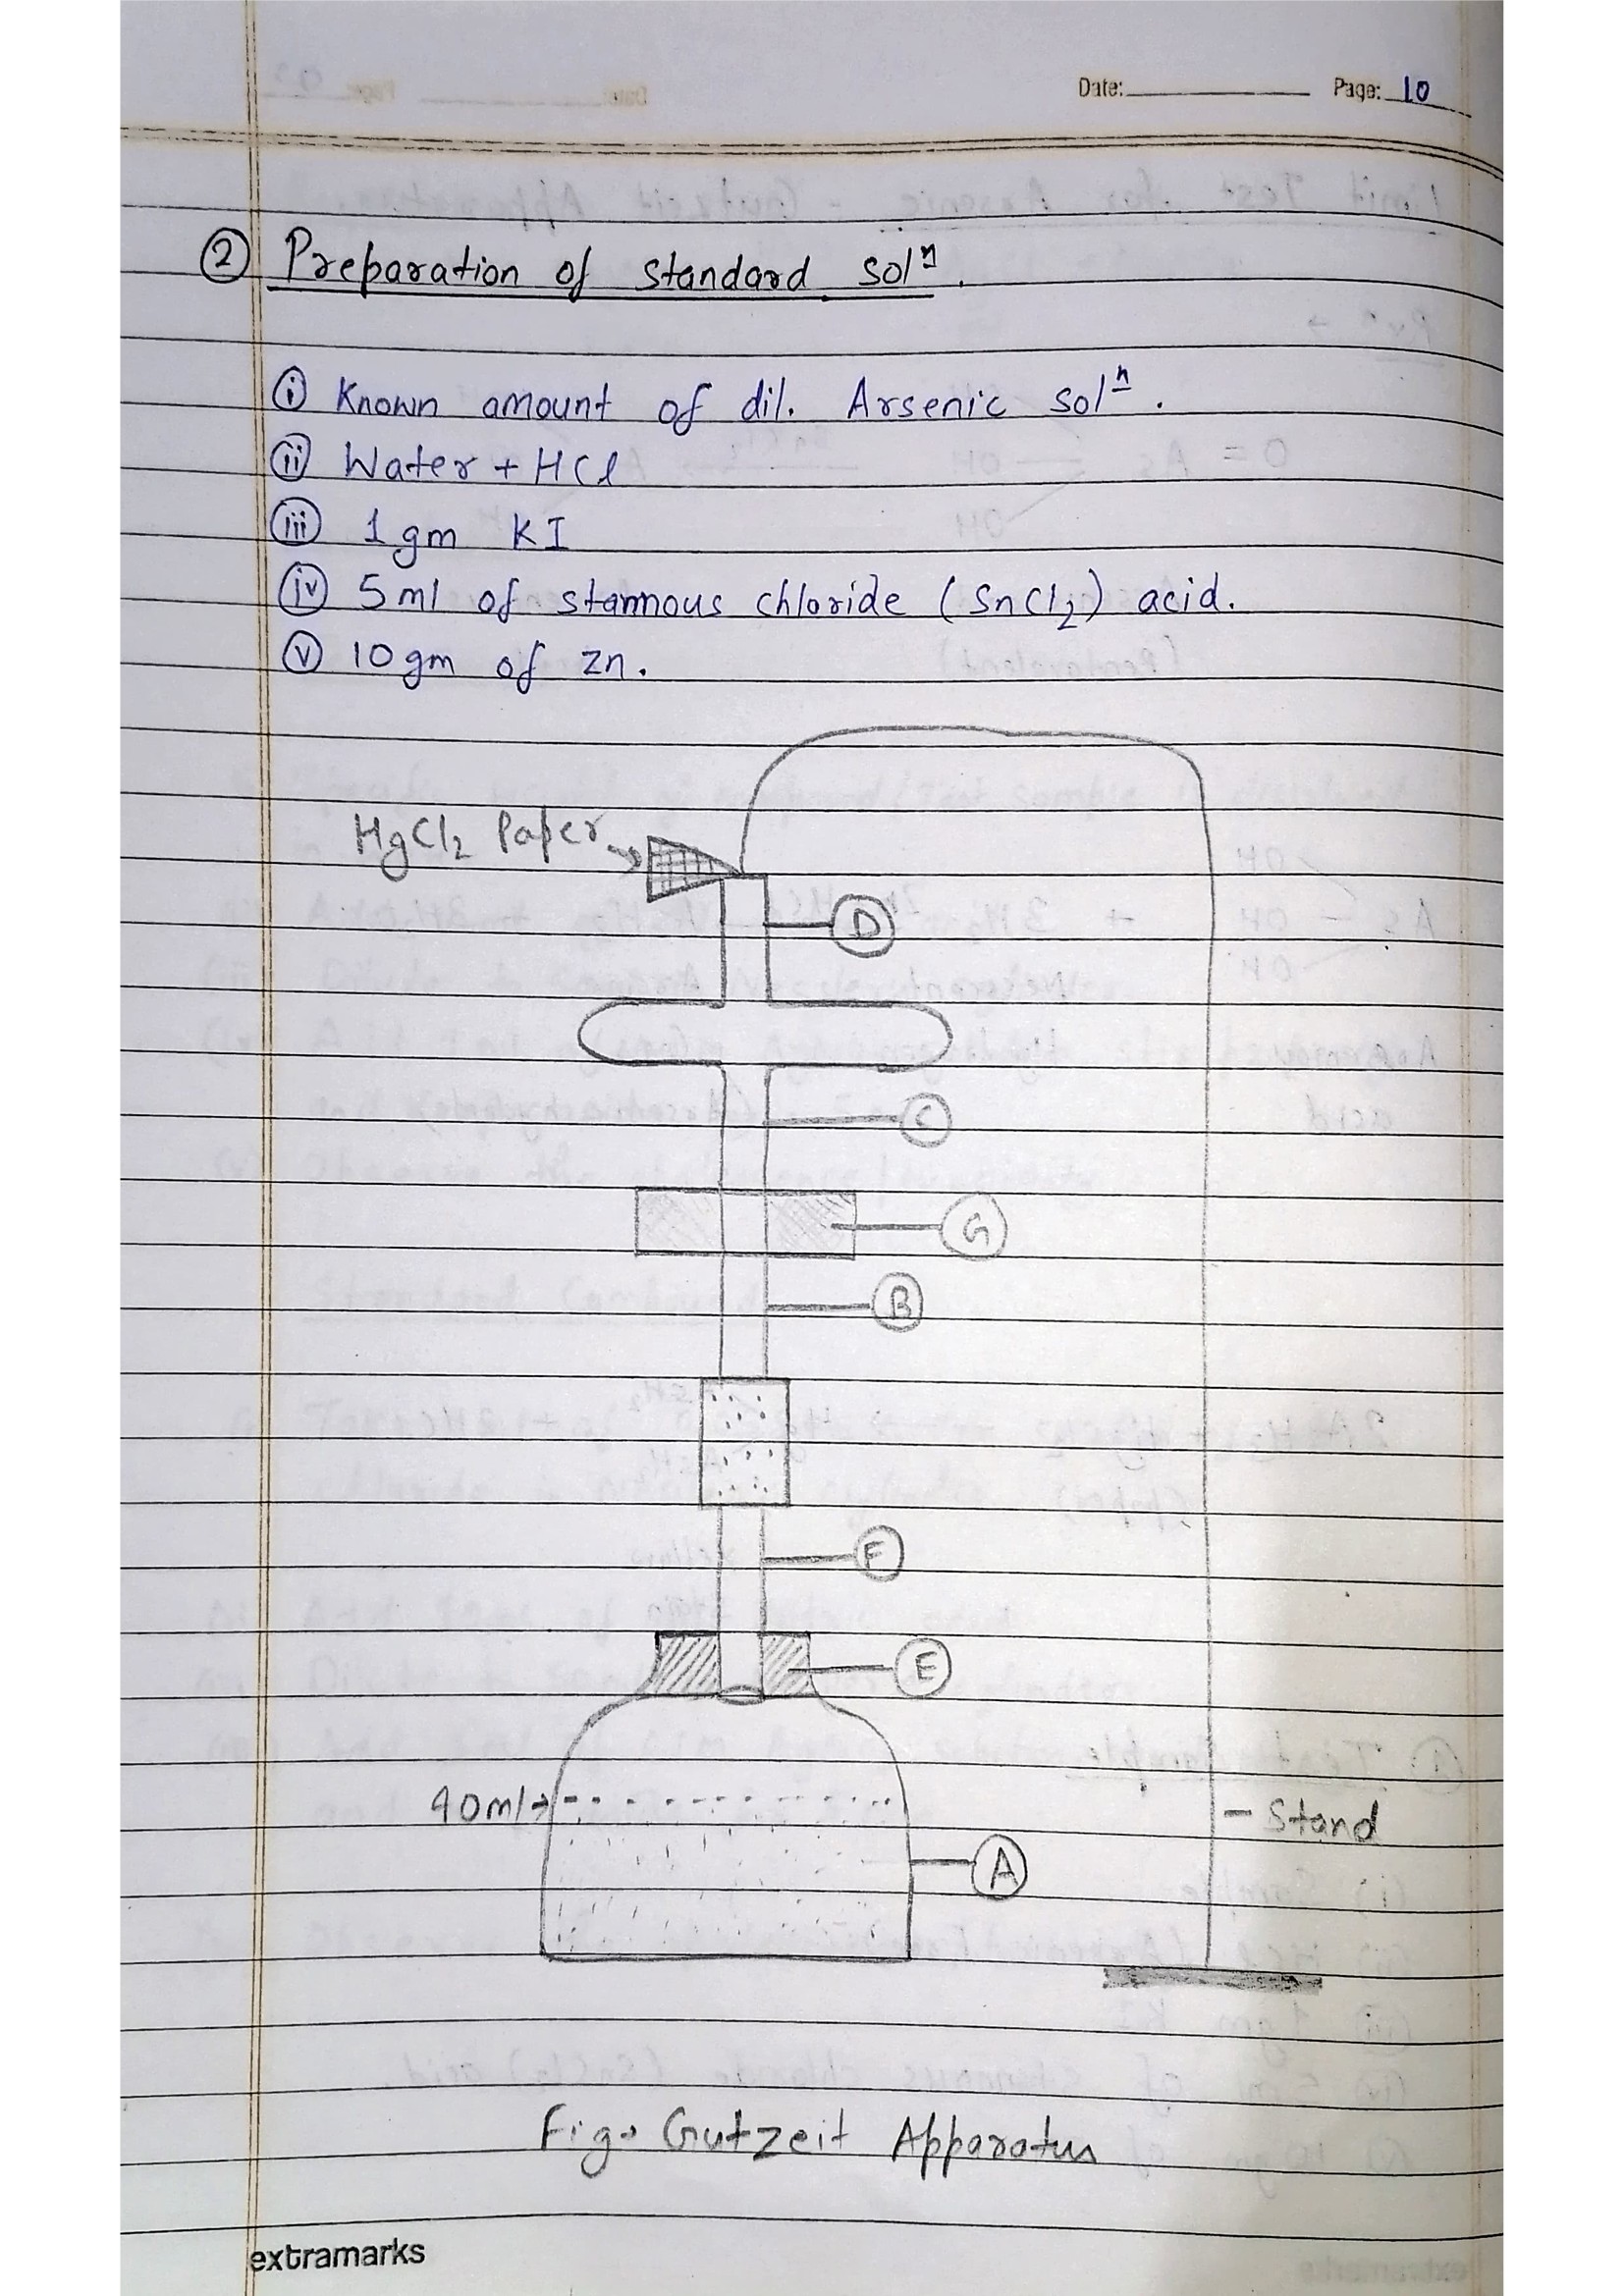 Date: Page: 10
② Preparation of standard solⁿ.
ⓘ Known amount of dil. Arsenic solⁿ.
(ii) Water + HCl
(iii) 1 gm KI
(iv) 5 ml of stannous chloride (SnCl₂) acid.
(v) 10 gm of Zn.
HgCl₂ Paper →
D
C
G
B
F
E
40ml →
- Stand
A
Fig. Gutzeit Apparatus
extramarks